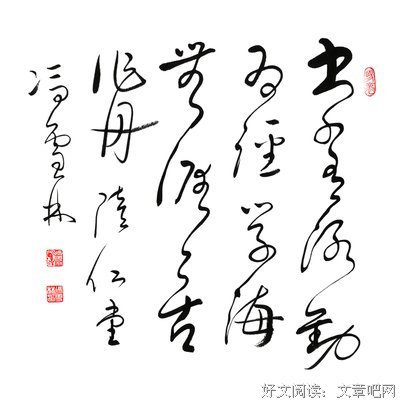 书山有路勤
为径学海
無涯苦
作舟 仁堂
冯雪林
好文阅读:文章吧网